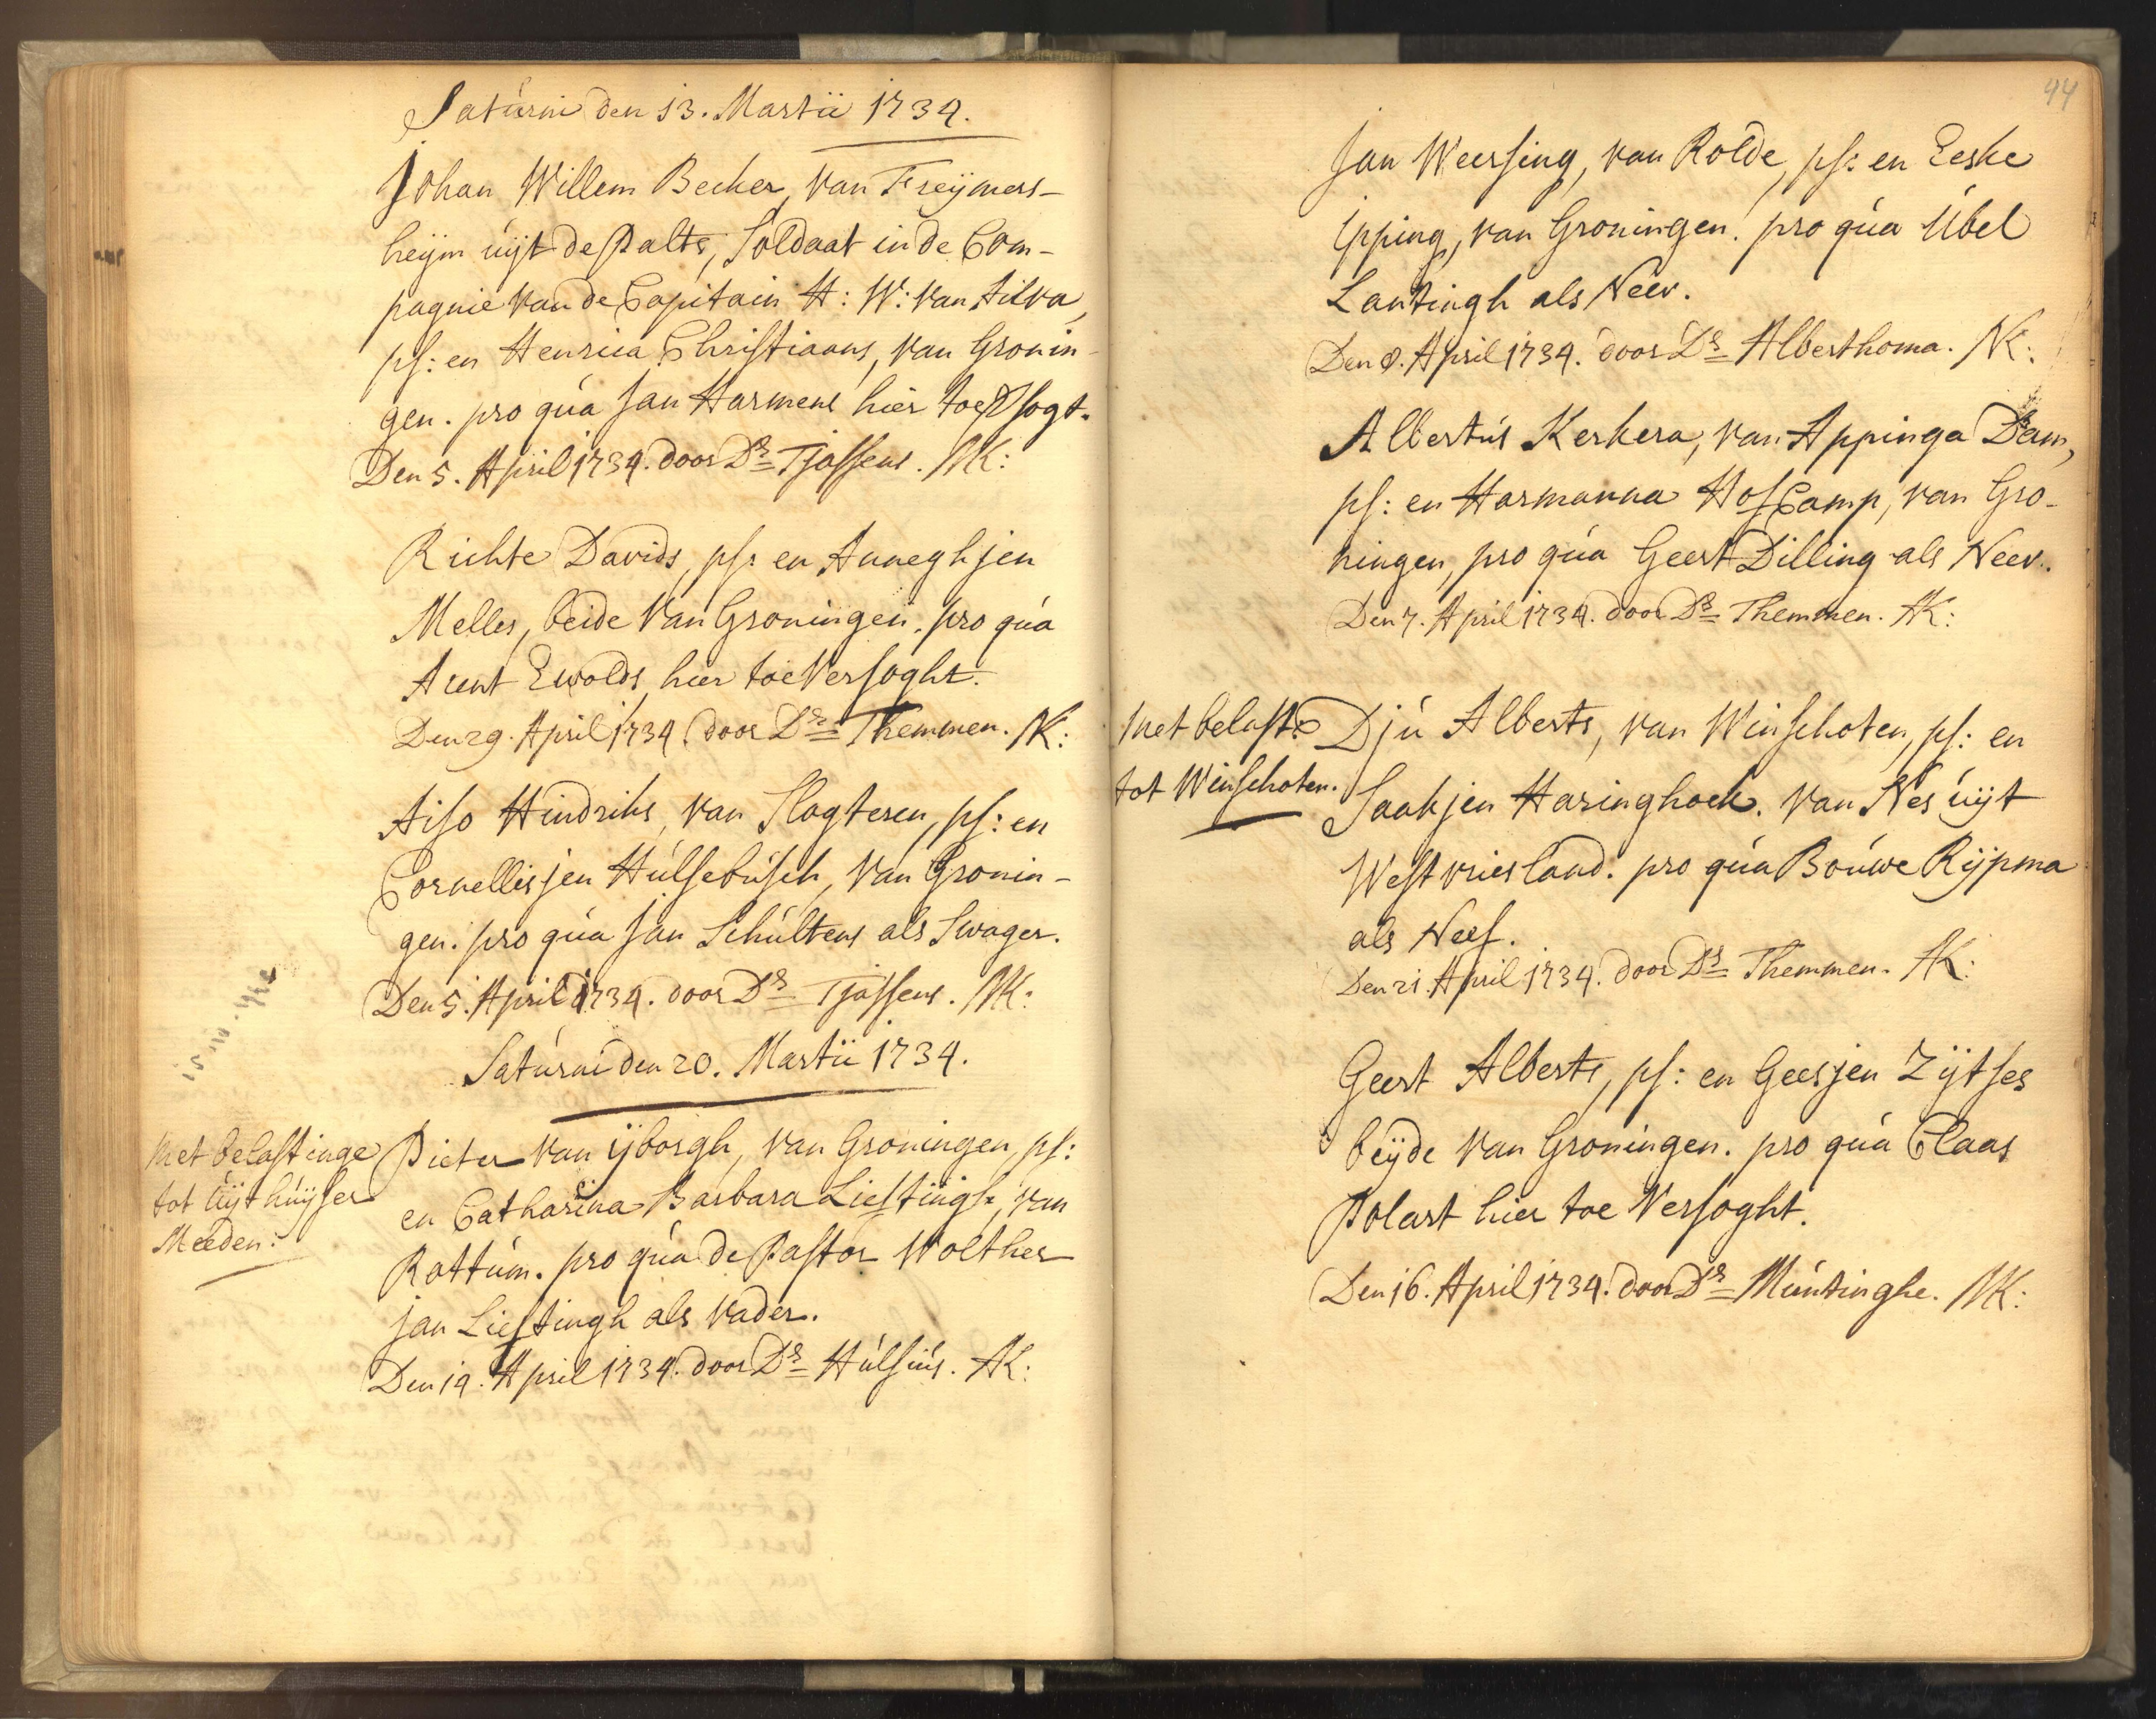 Saturni den 13. Martii 1734.
Johan Willem Becker, van Freijmers-
heijm uijt de Palts, Soldaat in de Com-
pagnie van de Capitain H: W: van Ailva,
ps: en Henrica Christiaans, van Gronin-
gen. pro qua Jan Harmens hier toe Vsogt.
Den 5. April 1734. door Ds Tjassens. NK:
Richte Davids, ps: en Anneghjen
Melles, beide van Groningen. pro qua
Arent Ewolds hier toe Versoght.
Den 29. April 1734. door Ds Themmen. NK:
Aiso Hindriks, van Slogteren, ps: en
Cornellisjen Hulsebusch, van Gronin-
gen. pro qua Jan Schultens als Swager.
Den 5. April 1734. door Ds Tjassens. NK:
Saturni den 20. Martii 1734.
Met belastinge
tot Uijthuijser
Meeden:
Pieter van ijborgh, van Groningen, ps:
en Catharina Barbara Liestingh, van
Rottum. pro qua de Pastor Wolther
jan Liestingh als vader.
Den 19. April 1734. door Ds Hulsius. AK:
44
Jan Weersing, van Rolde, ps: en Eeske
Ipping, van Groningen. pro qua Ubel
Lantingh als Neev.
Den 8. April 1734. door Ds Alberthoma. NK:
Albertus Kerkera, van Appinga Dam,
ps: en Harmanna HofCamp, van Gro-
ningen, pro qua Geert Dilling als Neev.
Den 7. April 1734. door Ds Themmen. AK:
Met belast:
tot Winschoten.
Dju Alberts, van Winschoten, ps: en
Saakjen Haringhoek. van Nes uijt
Westvriesland. pro qua Bouwe Rijpma
als Neef.
Den 21. April 1734. door Ds Themmen. AK:
Geert Alberts, ps: en Geesjen Zijtses
beijde van Groningen. pro qua Claas
Polart hier toe Versoght.
Den 16. April 1734. door Ds Muntinghe. NK: